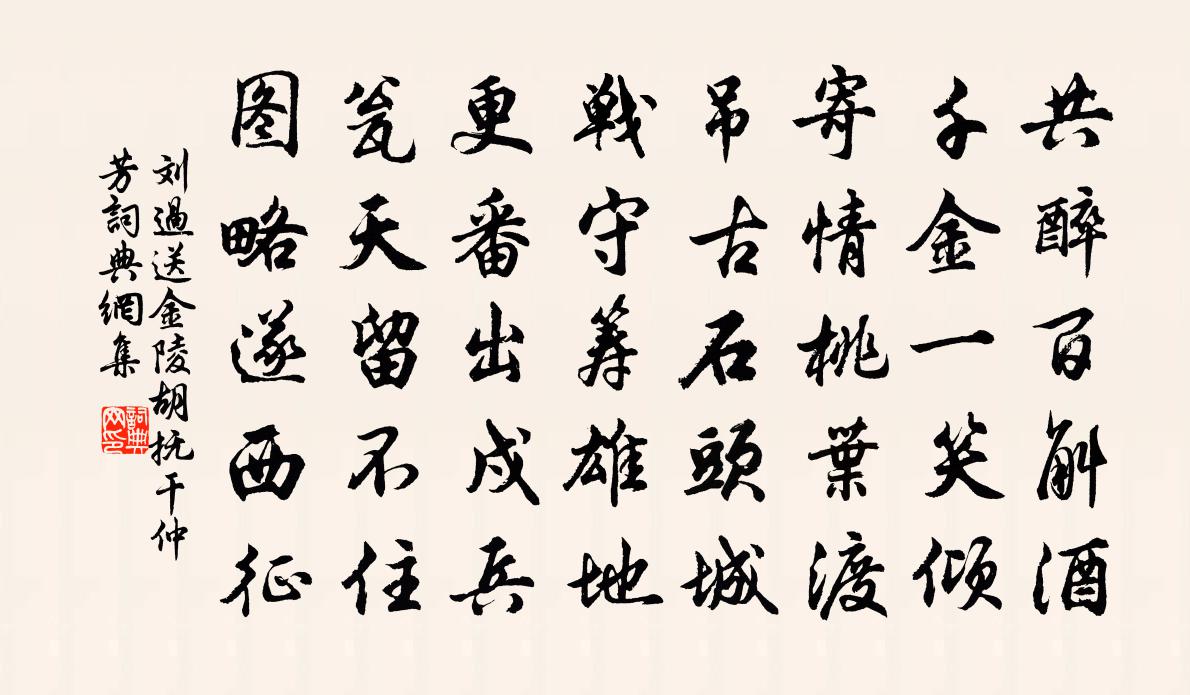 共醉百斛酒
千金一笑傾
寄情桃葉渡
吊古石頭城
戦守筹雄地
更番出戍兵
瓮天留不住
图略遂西征
刘過送金陵胡抚干仲
芳詞典網集
詞典
网印